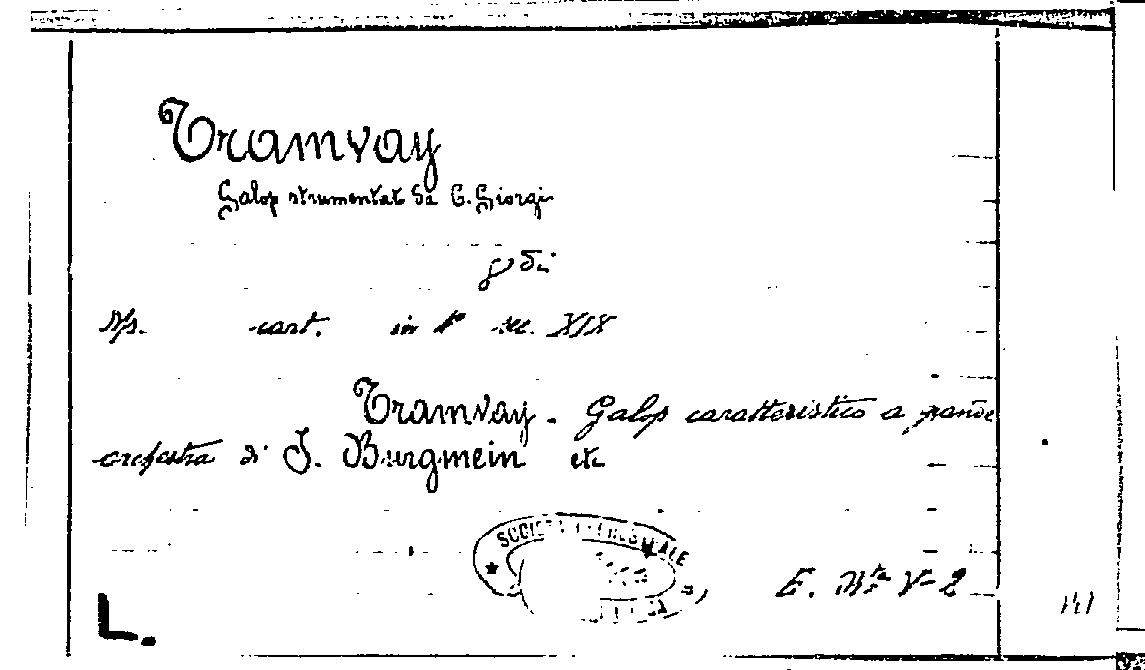 Tramvay
Galop strumentato da G. Giorgi
di
cart. in 4° sec. XIX
Tramvay. Galop caratteristico a grande
orchestra di J. Burgmein etc
SOCIETÀ
E. V-2
L.